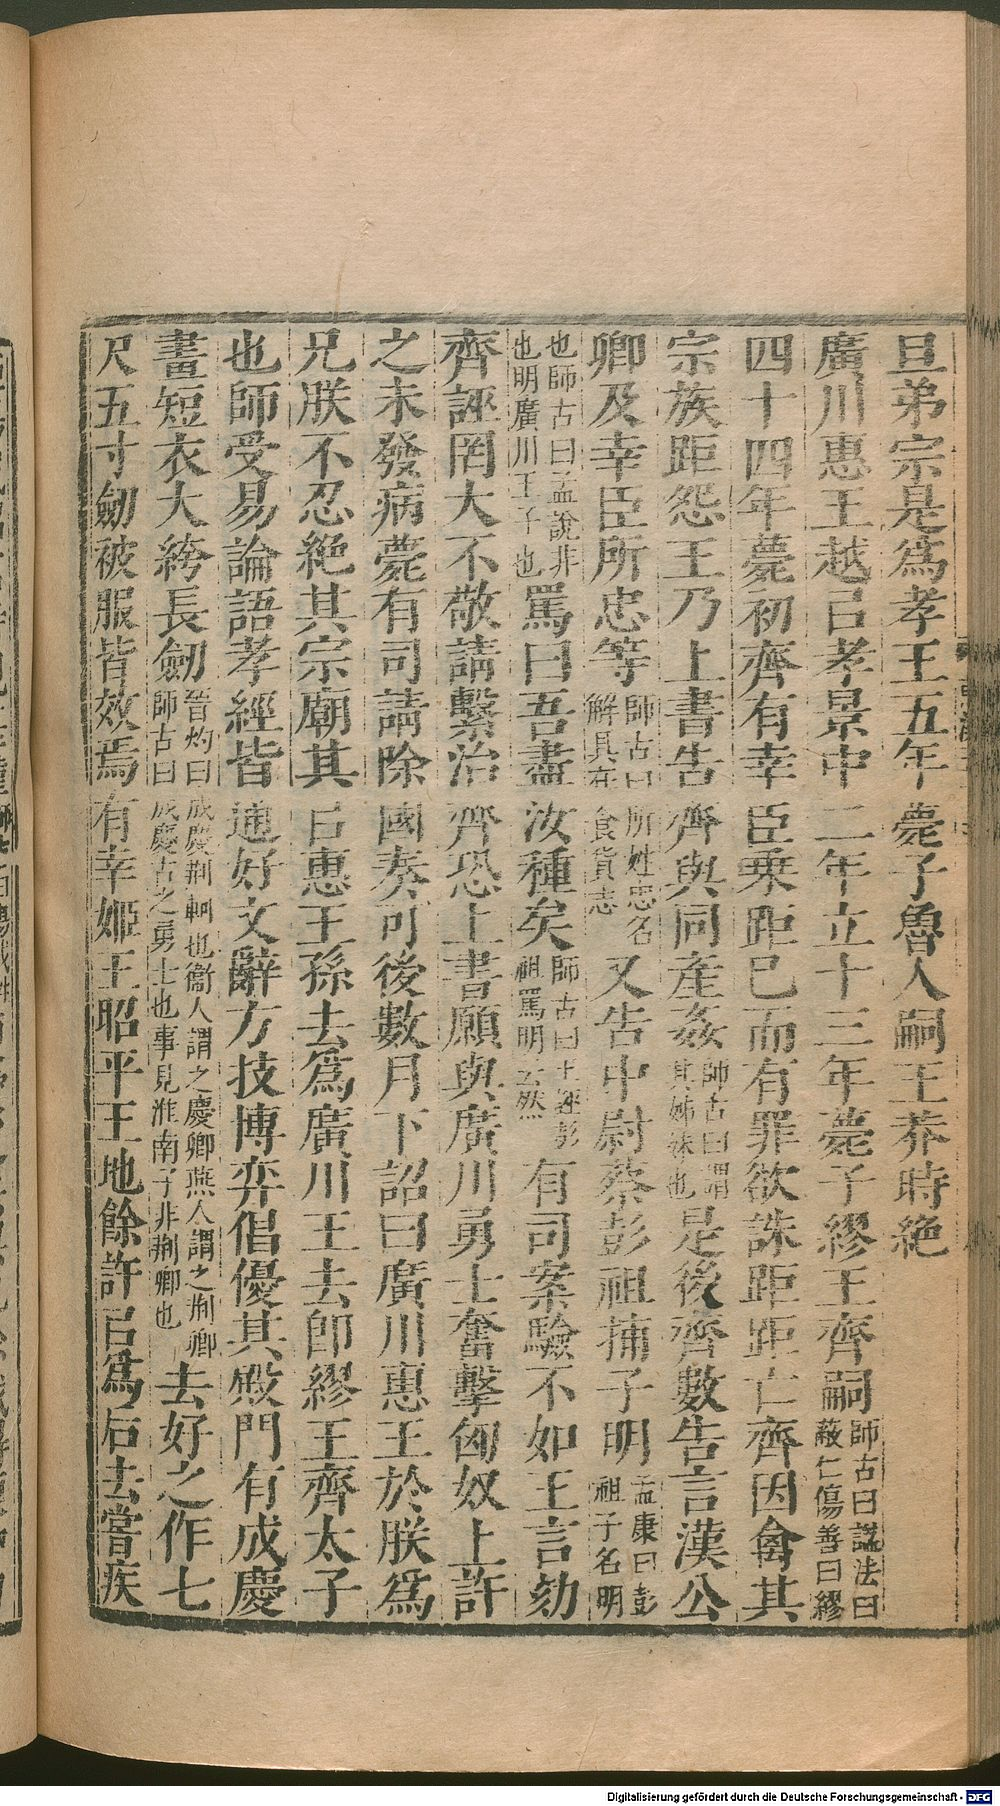 旦弟宗是爲孝王五年薨子魯人嗣王莽時絶
廣川惠王越㠯孝景中二年立十三年薨子繆王齊嗣師古曰諡法曰蔽仁傷善曰繆
四十四年薨初齊有幸臣乗距已而有罪欲誅距距亡齊因禽其
宗族距怨王乃上書告齊與同產姦師古曰謂其姊妹也是後齊數告言漢公
卿及幸臣所忠等師古曰所姓忠名解具在食貨志又告中尉蔡彭祖捕子明孟康曰彭祖子名明
也師古曰孟說非也明廣川王子也罵曰吾盡汝種矣師古曰王誣彭祖罵明云然有司案驗不如王言劾
齊誣罔大不敬請繫治齊恐上書願與廣川勇士奮擊匈奴上許
之未發病薨有司請除國奏可後數月下詔曰廣川惠王於朕爲
兄朕不忍絶其宗廟其㠯惠王孫去爲廣川王去卽繆王齊太子
也師受易論語孝經皆通好文辭方技博弈倡優其殿門有成慶
畫短衣大絝長劒晉灼曰成慶荆軻也衞人謂之慶卿燕人謂之荆卿師古曰成慶古之勇士也事見淮南子非荆卿也去好之作七
尺五寸劒被服皆效焉有幸姬王昭平王地餘許㠯爲后去嘗疾
Digitalisierung gefördert durch die Deutsche Forschungsgemeinschaft - DFG